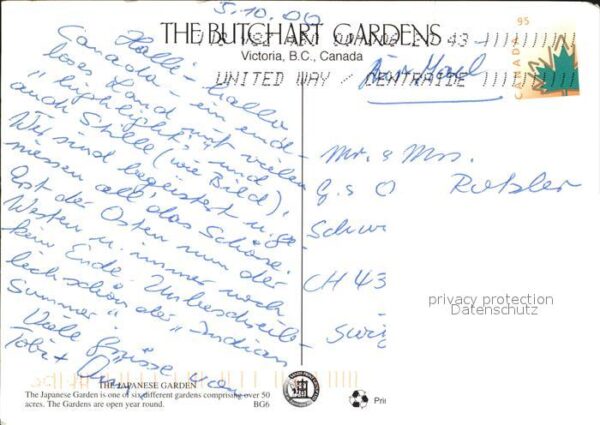 5.10.00
THE BUTCHART GARDENS
Victoria, B.C., Canada
UNITED WAY / CENTRAIDE
CANADA 95
Air Mail
Halli - hallo
Canada - ein end-
loses Land mit vielen
"highlights" und
auch Stille (wie Bild).
Wir sind begeistert u. ge-
niessen all' das Schöne.
Erst der Osten nun der
Westen u. immer noch
kein Ende. Unbeschreib-
lich schön der "Indian
Summer".
Viele Grüsse von
Tobi +
Mr. & Mrs.
G. & O Rutzler
CH 43
privacy protection
Datenschutz
THE JAPANESE GARDEN
The Japanese Garden is one of six different gardens comprising over 50
acres. The Gardens are open year round. BG6
Pri